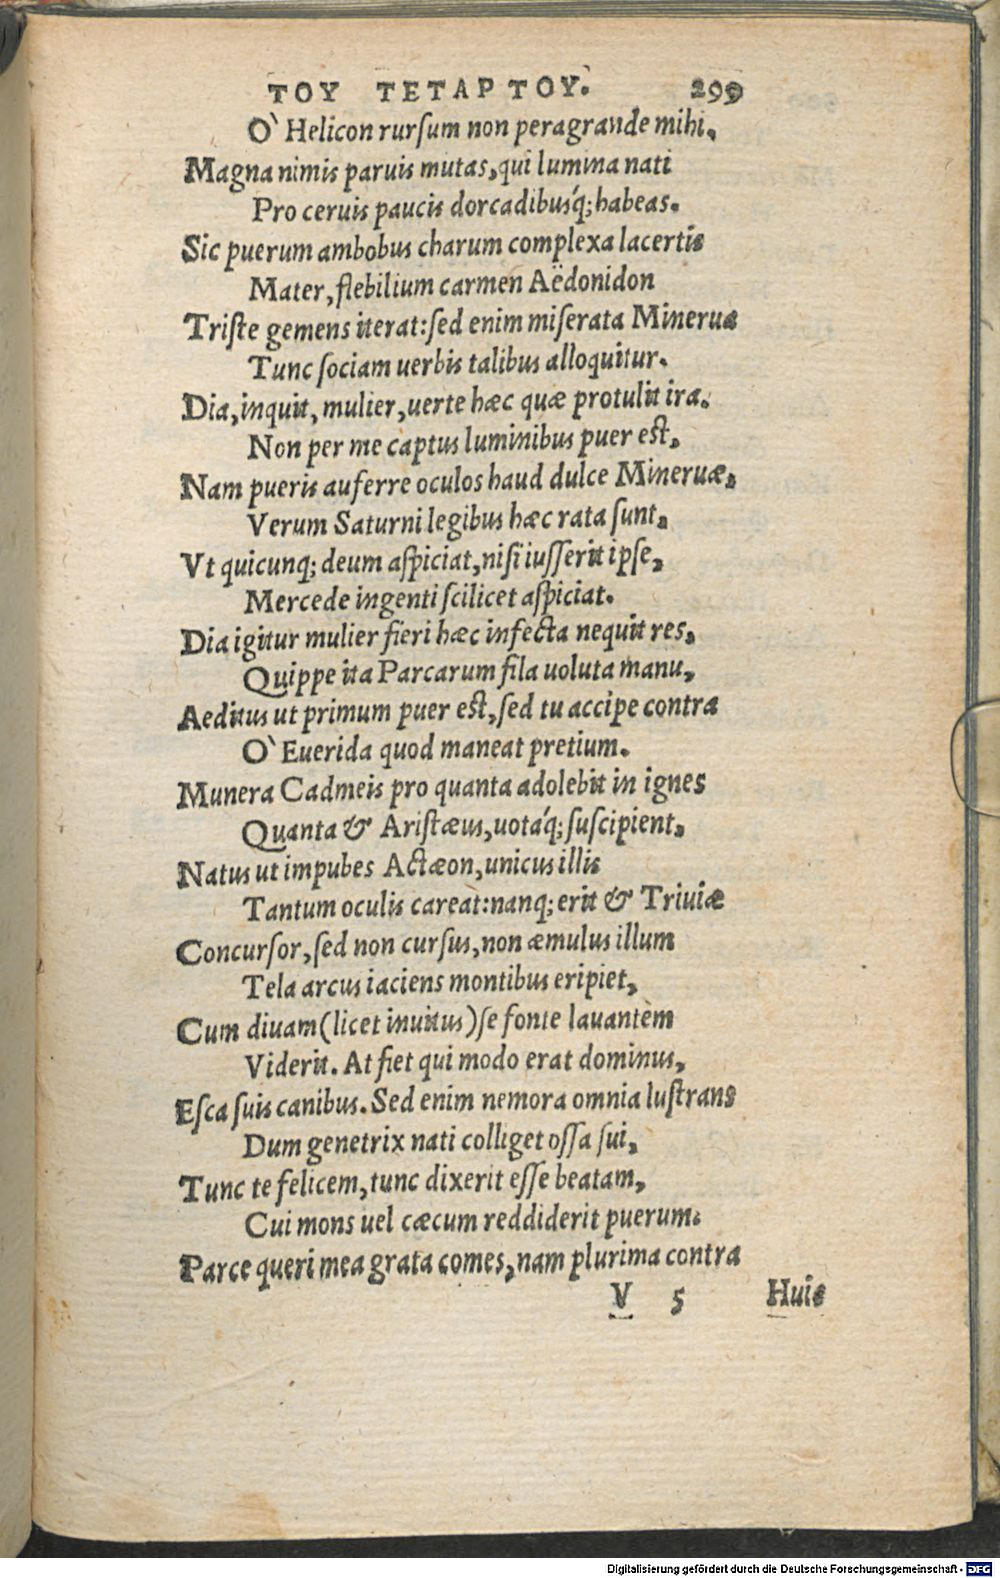 ΤΟΥ ΤΕΤΑΡΤΟΥ. 299
O` Helicon rursum non peragrande mihi.
Magna nimis paruis mutas, qui lumina nati
Pro ceruis paucis dorcadibusq́; habeas.
Sic puerum ambobus charum complexa lacertis
Mater, flebilium carmen Aëdonidon
Triste gemens iterat: sed enim miserata Mineruæ
Tunc sociam uerbis talibus alloquitur.
Dia, inquit, mulier, uerte hæc quæ protulit ira.
Non per me captus luminibus puer est,
Nam pueris auferre oculos haud dulce Mineruæ,
Verum Saturni legibus hæc rata sunt,
Vt quicunq; deum aspiciat, nisi iusserit ipse,
Mercede ingenti scilicet aspiciat.
Dia igitur mulier fieri hæc infecta nequit res,
Quippe ita Parcarum fila uoluta manu,
Aeditus ut primum puer est, sed tu accipe contra
O` Euerida quod maneat pretium.
Munera Cadmeis pro quanta adolebit in ignes
Quanta & Aristæus, uotaq́; suscipient,
Natus ut impubes Actæon, unicus illis
Tantum oculis careat: nanq; erit & Triuiæ
Concursor, sed non cursus, non æmulus illum
Tela arcus iaciens montibus eripiet,
Cum diuam (licet inuitus) se fonte lauantem
Viderit. At fiet qui modo erat dominus,
Esca suis canibus. Sed enim nemora omnia lustrans
Dum genetrix nati colliget ossa sui,
Tunc te felicem, tunc dixerit esse beatam,
Cui mons uel cæcum reddiderit puerum.
Parce queri mea grata comes, nam plurima contra
V 5 Huic
Digitalisierung gefördert durch die Deutsche Forschungsgemeinschaft - DFG